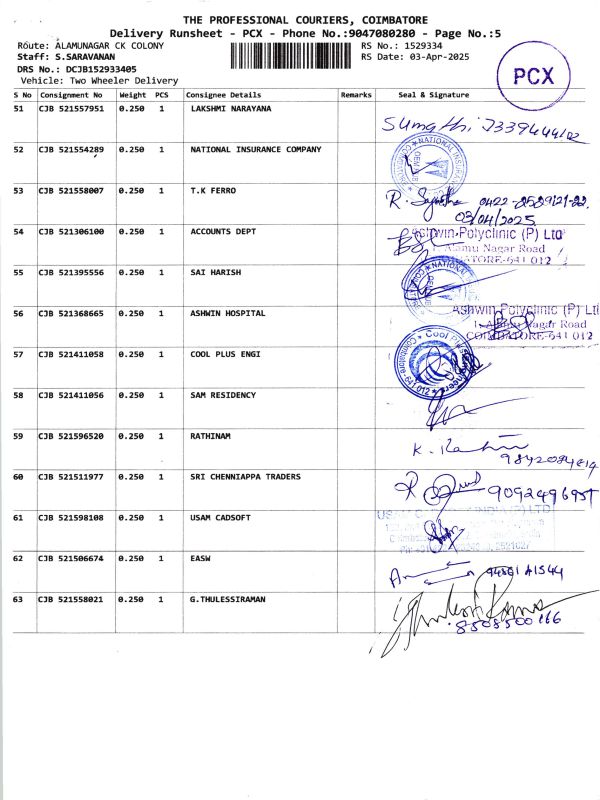 THE PROFESSIONAL COURIERS, COIMBATORE
Delivery Runsheet - PCX - Phone No.:9047080280 - Page No.:5
Route: ALAMUNAGAR CK COLONY
RS No.: 1529334
Staff: S.SARAVANAN
RS Date: 03-Apr-2025
DRS No.: DCJB152933405
Vehicle: Two Wheeler Delivery
PCX
S No Consignment No Weight PCS Consignee Details Remarks Seal & Signature
51 CJB 521557951 0.250 1 LAKSHMI NARAYANA
52 CJB 521554289 0.250 1 NATIONAL INSURANCE COMPANY
53 CJB 521558007 0.250 1 T.K FERRO
03/04/2025
54 CJB 521306100 0.250 1 ACCOUNTS DEPT
Ashwin Polyclinic (P) Ltd
Alamu Nagar Road
641 012
55 CJB 521395556 0.250 1 SAI HARISH
56 CJB 521368665 0.250 1 ASHWIN HOSPITAL
Ashwin Polyclinic (P) Lt
1, Alamu Nagar Road
COIMBATORE-641 012
57 CJB 521411058 0.250 1 COOL PLUS ENGI
58 CJB 521411056 0.250 1 SAM RESIDENCY
59 CJB 521596520 0.250 1 RATHINAM
60 CJB 521511977 0.250 1 SRI CHENNIAPPA TRADERS
61 CJB 521598108 0.250 1 USAM CADSOFT
62 CJB 521506674 0.250 1 EASW
63 CJB 521558021 0.250 1 G.THULESSIRAMAN
8508500166